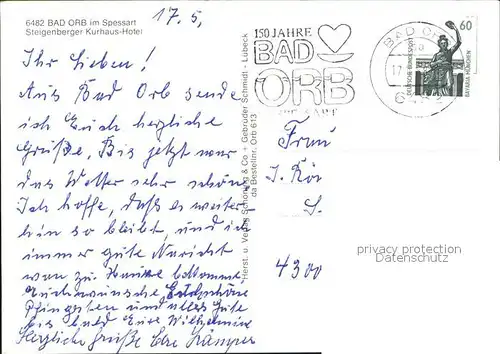 6482 BAD ORB im Spessart
Steigenberger Kurhaus-Hotel
17. 5.
Ihr Lieben!
Aus Bad Orb sende
ich Euch herzliche
Grüße. Bis jetzt war
das Wetter sehr schön
Ich hoffe, daß es weiter-
hin so bleibt, und ich
immer gute Nachricht
von zu Hause bekomme.
Euch wünsche
Pfingsten und alles Gute
bis bald Eure Wilhelmine
Herzliche Grüße
Herst. u. Verlag Schöning & Co + Gebrüder Schmidt - Lübeck
da Bestellnr. Orb 613
150 JAHRE
BAD
ORB
BAD OR
17
60
DEUTSCHE BUNDESPOST
BAVARIA MÜNCHEN
Frau
4300
privacy protection
Datenschutz